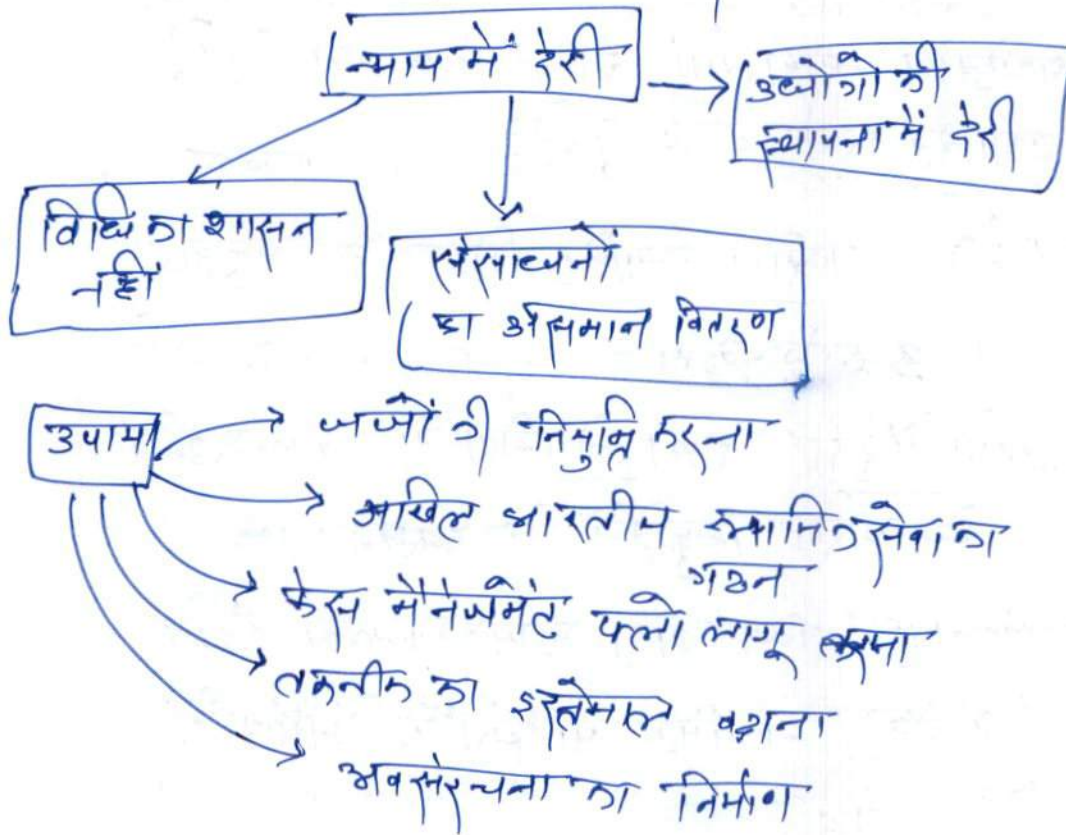 न्याय में देरी
उद्योगों की
स्थापना में देरी
विधि का शासन
नहीं
संसाधनों
का असमान वितरण
उपाय
जजों की नियुक्ति करना
अखिल भारतीय न्यायिक सेवा का
गठन
केस मैनेजमेंट फ्लो लागू करना
तकनीक का इस्तेमाल बढ़ाना
अवसंरचना का निर्माण